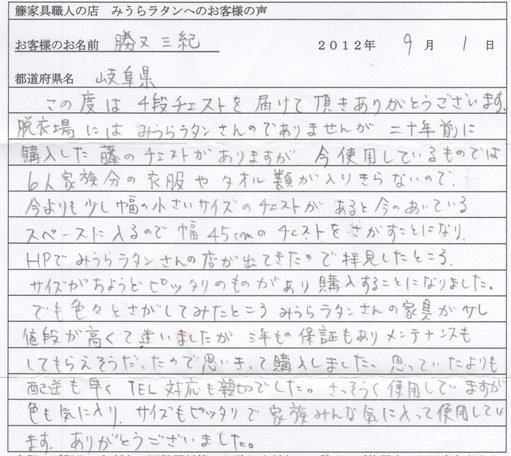 籐家具職人の店 みうらラタンへのお客様の声
お客様のお名前 勝又三紀 2012年 9月 1日
都道府県名 岐阜県
この度は4段チェストを届けて頂きありがとうございます。
脱衣場にはみうらラタンさんのでありませんが二十年前に
購入した藤のチェストがありますが、今使用しているものでは
6人家族分の衣服やタオル類が入りきらないので、
今よりも少し幅の小さいサイズのチェストがあると今のあいている
スペースに入るので幅45cmのチェストをさがすことになり、
HPでみうらラタンさんの店が出てきたので拝見したところ、
サイズがちょうどピッタリのものがあり購入することになりました。
でも色々とさがしてみたところみうらラタンさんの家具が少し
値段が高くて迷いましたが三年もの保証もありメンテナンスも
してもらえそうだったので思いきって購入しました。思っていたよりも
配送も早くTEL対応も親切でした。さっそく使用していますが
色も気に入り、サイズもピッタリで家族みんな気に入って使用してい
ます。ありがとうございました。